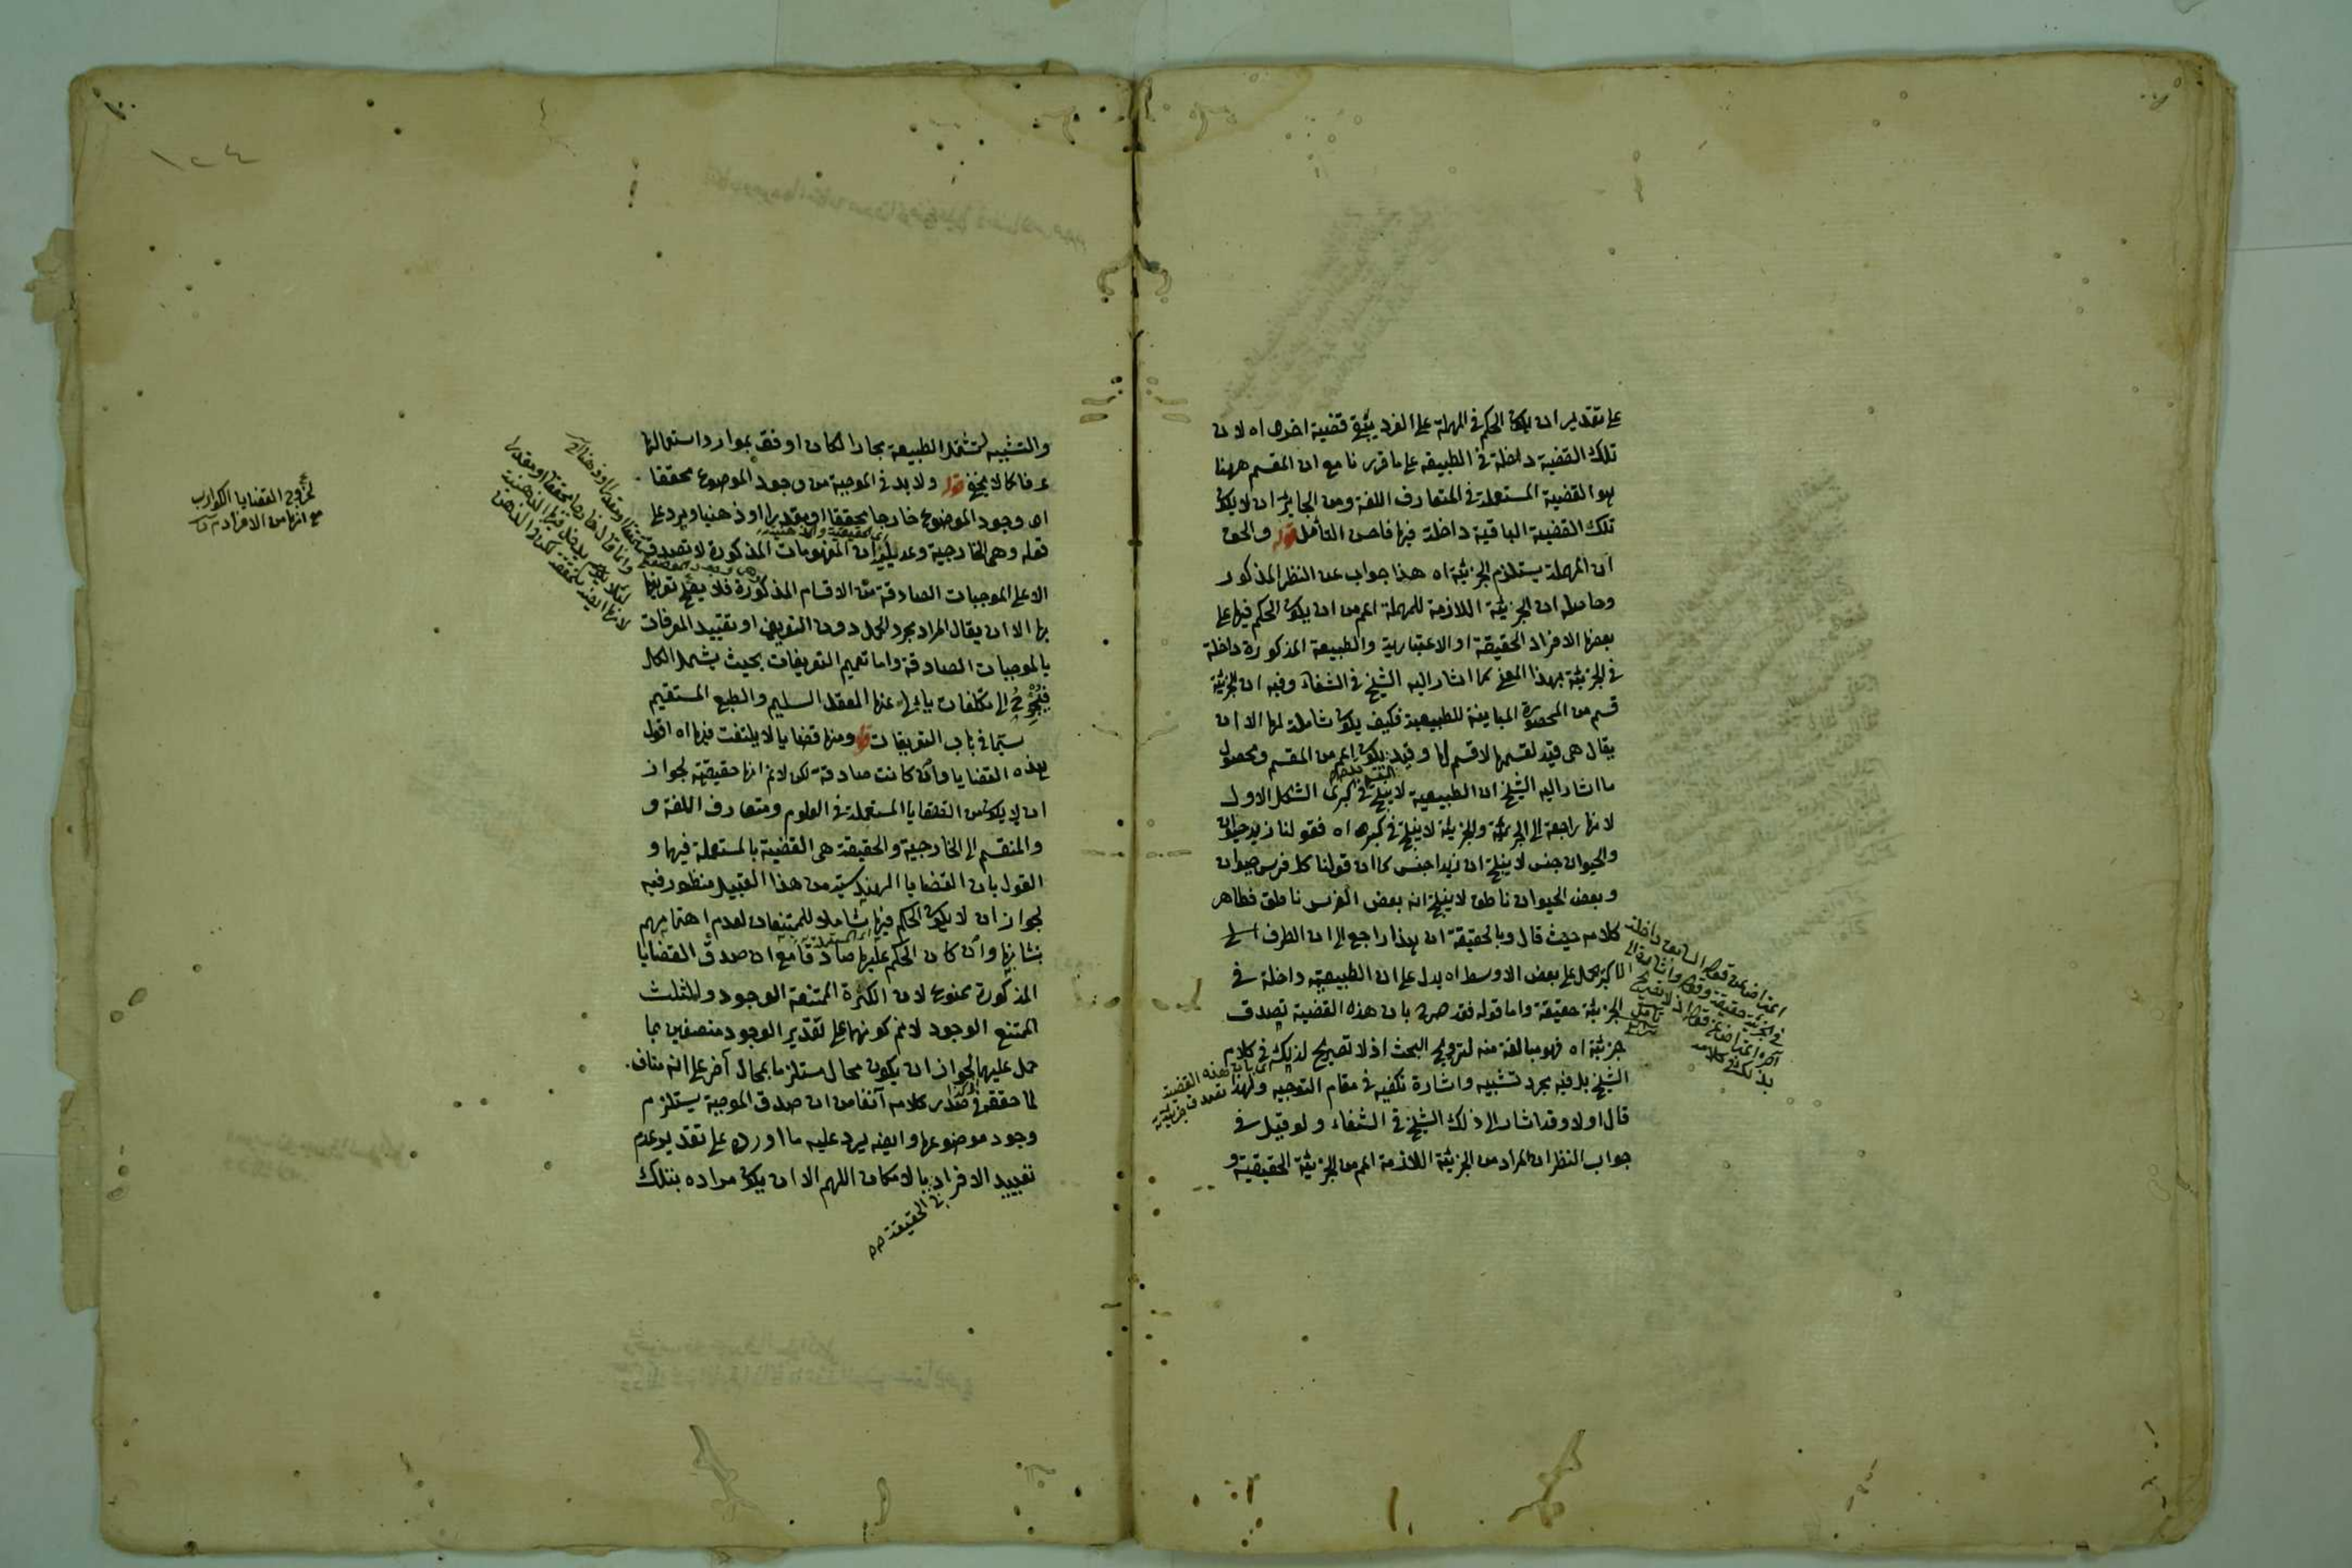 على تقدير ان يكون الحكم في المهملة على الفرد يبقى قضية اخرى اه لان
تلك القضية داخلة في الطبيعة على ما قررنا مع ان المقسم ههنا
هو القضية المستعملة في المتعارف اللغة ومن الجايز ان لا يكون
تلك القضية الباقية داخلة فيها فاحسن التأمل قوله والحق
ان المهملة يستلزم الجزئية اه هذا جواب عن النظر المذكور
وحاصله ان الجزئية اللازمة للمهملة اعم من ان يكون الحكم فيها على
بعض الافراد الحقيقة او الاعتبارية والطبيعة المذكورة داخلة
في الجزئية بهذا المعنى كما اشار اليه الشيخ في الشفاء وفيه ان الجزئية
قسم من المحصورة المباينة للطبيعية فكيف يكون شاملة لها الا ان
يقال هي قيد لقسمها لا قسم لها وقيد يكون اعم من المقسم ومحصول
ما اشار اليه الشيخ ان الطبيعية لا ينتج في كبرى الشكل الاول
لانها راجعة الى الجزئية والجزئية لا ينتج في كبراه اه فقولنا زيد حيوان
والحيوان جنس لا ينتج ان زيدا جنس كما ان قولنا كل فرس حيوان
وبعض الحيوان ناطق لا ينتج ان بعض الفرس ناطق فظاهر
كلامه حيث قال وبالحقيقة ان هذا راجع الى ان الطرف
الاكبر يحمل على بعض الاوسط اه يدل على ان الطبيعية داخلة في
الجزئية حقيقة واما قوله فقد صرح بان هذه القضية تصدق
جزئية اه فهو مبالغة منه لترويج البحث اذ لا تصريح لذلك في كلام
الشيخ بل فيه مجرد تشبيه واشارة تكفيه في مقام التوجيه ولهذا
قال اولا وقد اشار الى ذلك الشيخ في الشفاء ولو قيل في
جواب النظر ان المراد من الجزئية اللازمة اعم من الجزئية الحقيقية و
بان هذه القضية
تصدق جزئية
في الجزئية حقيقة وقوله واشارة
بذلك في كلامه
١٢٤
والتشبيه لتشمل الطبيعة مجازا لكان اوفق بموارد استعمالها
عرفا كما لا يخفى قوله ولا بد في الموجبة من وجود الموضوع محققا
اه وجود الموضوع خارجا محققا او مقدرا او ذهنيا ويرد على
قوله وهي الخارجية وعديليه ان المفهومات المذكورة لا تصدق
الا على الموجبات الصادقة من الاقسام المذكورة فلا يصح تعريفها
بها الا ان يقال المراد مجرد الحمل دون التعريف او تقييد المعرفات
بالموجبات الصادقة واما تعميم التعريفات بحيث يشمل الكل
فيحوج الى تكلفات يابى عنها العقل السليم والطبع المستقيم
سيما في باب التعريفات قوله ومنها قضايا لا يلتفت فيها اه اقول
هذه القضايا وان كانت صادقة لكن لا نم انها حقيقية لجواز
ان لا يكون من القضايا المستعملة في العلوم ومتعارف اللغة و
والمنقسم الى الخارجية والحقيقة هي القضية بالمستعملة فيها و
القول بان القضايا الهندسية من هذا القبيل منظور فيه
لجواز ان لا يكون الحكم فيها شاملا للممتنعات لعدم اهتمامهم
بشانها وان كان الحكم عليها صادقا مع ان صدق القضايا
المذكورة ممنوع لان الكثرة الممتنعة الوجود والمثلث
الممتنع الوجود لا نم كونهما على تقدير الوجود متصفين بما
حمل عليهما لجواز ان يكون محال مستلزما بمحال آخر على انه مناف
لما حققه في صدر كلامه آنفا من ان صدق الموجبة يستلزم
وجود موضوعها وايضه يرد عليه ما اورده على تقدير عدم
تقييد الافراد بالامكان اللهم الا ان يكون مراده بتلك
في الحقيقة م م
لخروج القضايا الكواذب
مع انها من الافراد